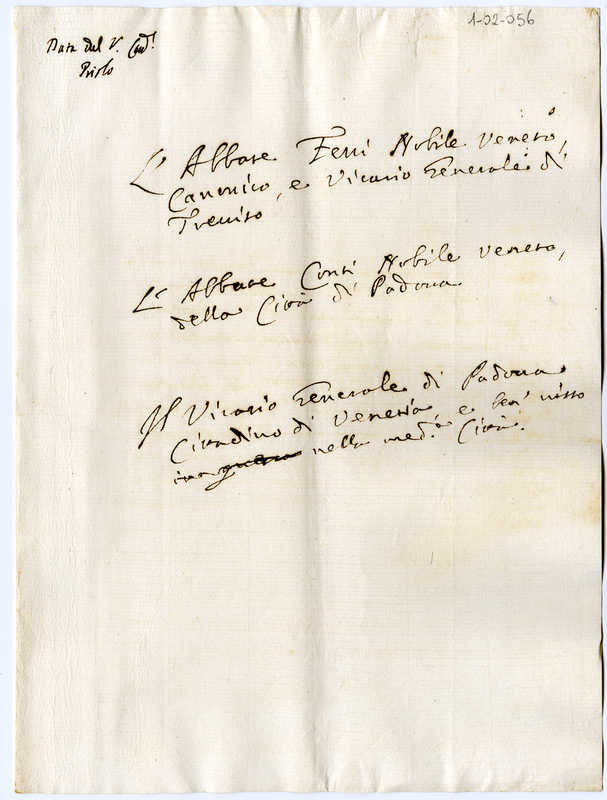 1-02-056
Data dal V. Cardl.
Priolo
L'Abbate Ferri Nobile Veneto,
Canonico, e Vicario Generale di
Treviso
L'Abbate Conti Nobile Veneto,
della Città di Padova
Il Vicario Generale di Padova
Cittadino di Venezia, e ben visto
nella med.a Città.